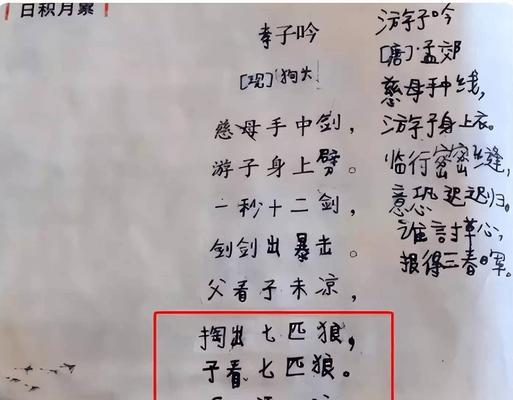 日积月累
孝子吟
[现]狗头
慈母手中剑，
游子身上劈。
一秒十二剑，
剑剑出暴击。
父看子未凉，
掏出七匹狼，
子看七匹狼。
游子吟
[唐]·孟郊
慈母手中线，
游子身上衣。
临行密密缝，
意恐迟迟归。
谁討草心，
报得三春晖。